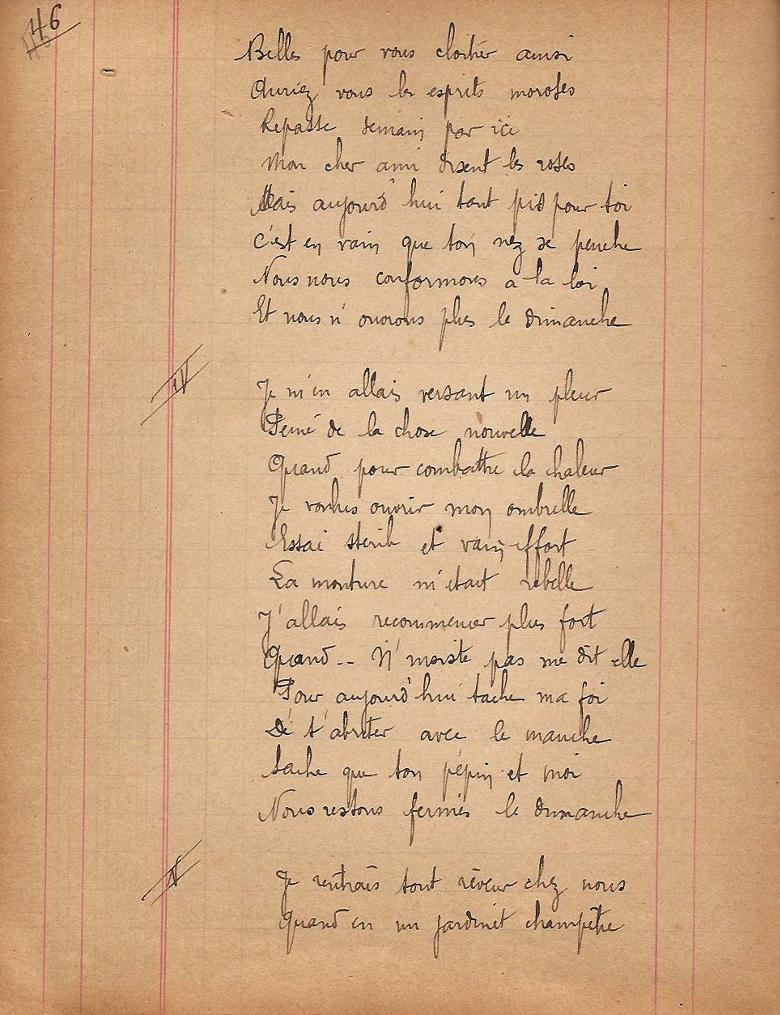 46
Belles pour vous cloitrer ainsi
Auriez vous les esprits moroses
Repasse demain par ici
Mon cher ami disent les roses
Mais aujourd'hui tant pis pour toi
C'est en vain que ton nez se penche
Nous nous conformons a la loi
Et nous n'ouvrons plus le dimanche
IV
Je m'en allais versant un pleur
Peiné de la chose nouvelle
Quand pour combattre la chaleur
Je voulus ouvrir mon ombrelle
Essai steril et vain effort
La monture m'etait rebelle
J'allais recommencer plus fort
Quand -- N'insiste pas me dit elle
Pour aujourd'hui tache ma foi
De t'abriter avec le manche
Sache que ton pépin et moi
Nous restons fermés le dimanche
V
Je rentrais tout rêveur chez nous
Quand en un jardinet champêtre